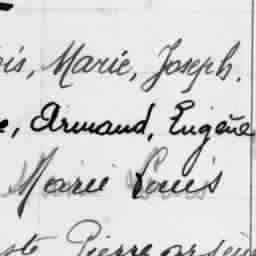 ois, Marie, Joseph.
e, Armand, Eugène
Marie Louis
ste Pierre arsène